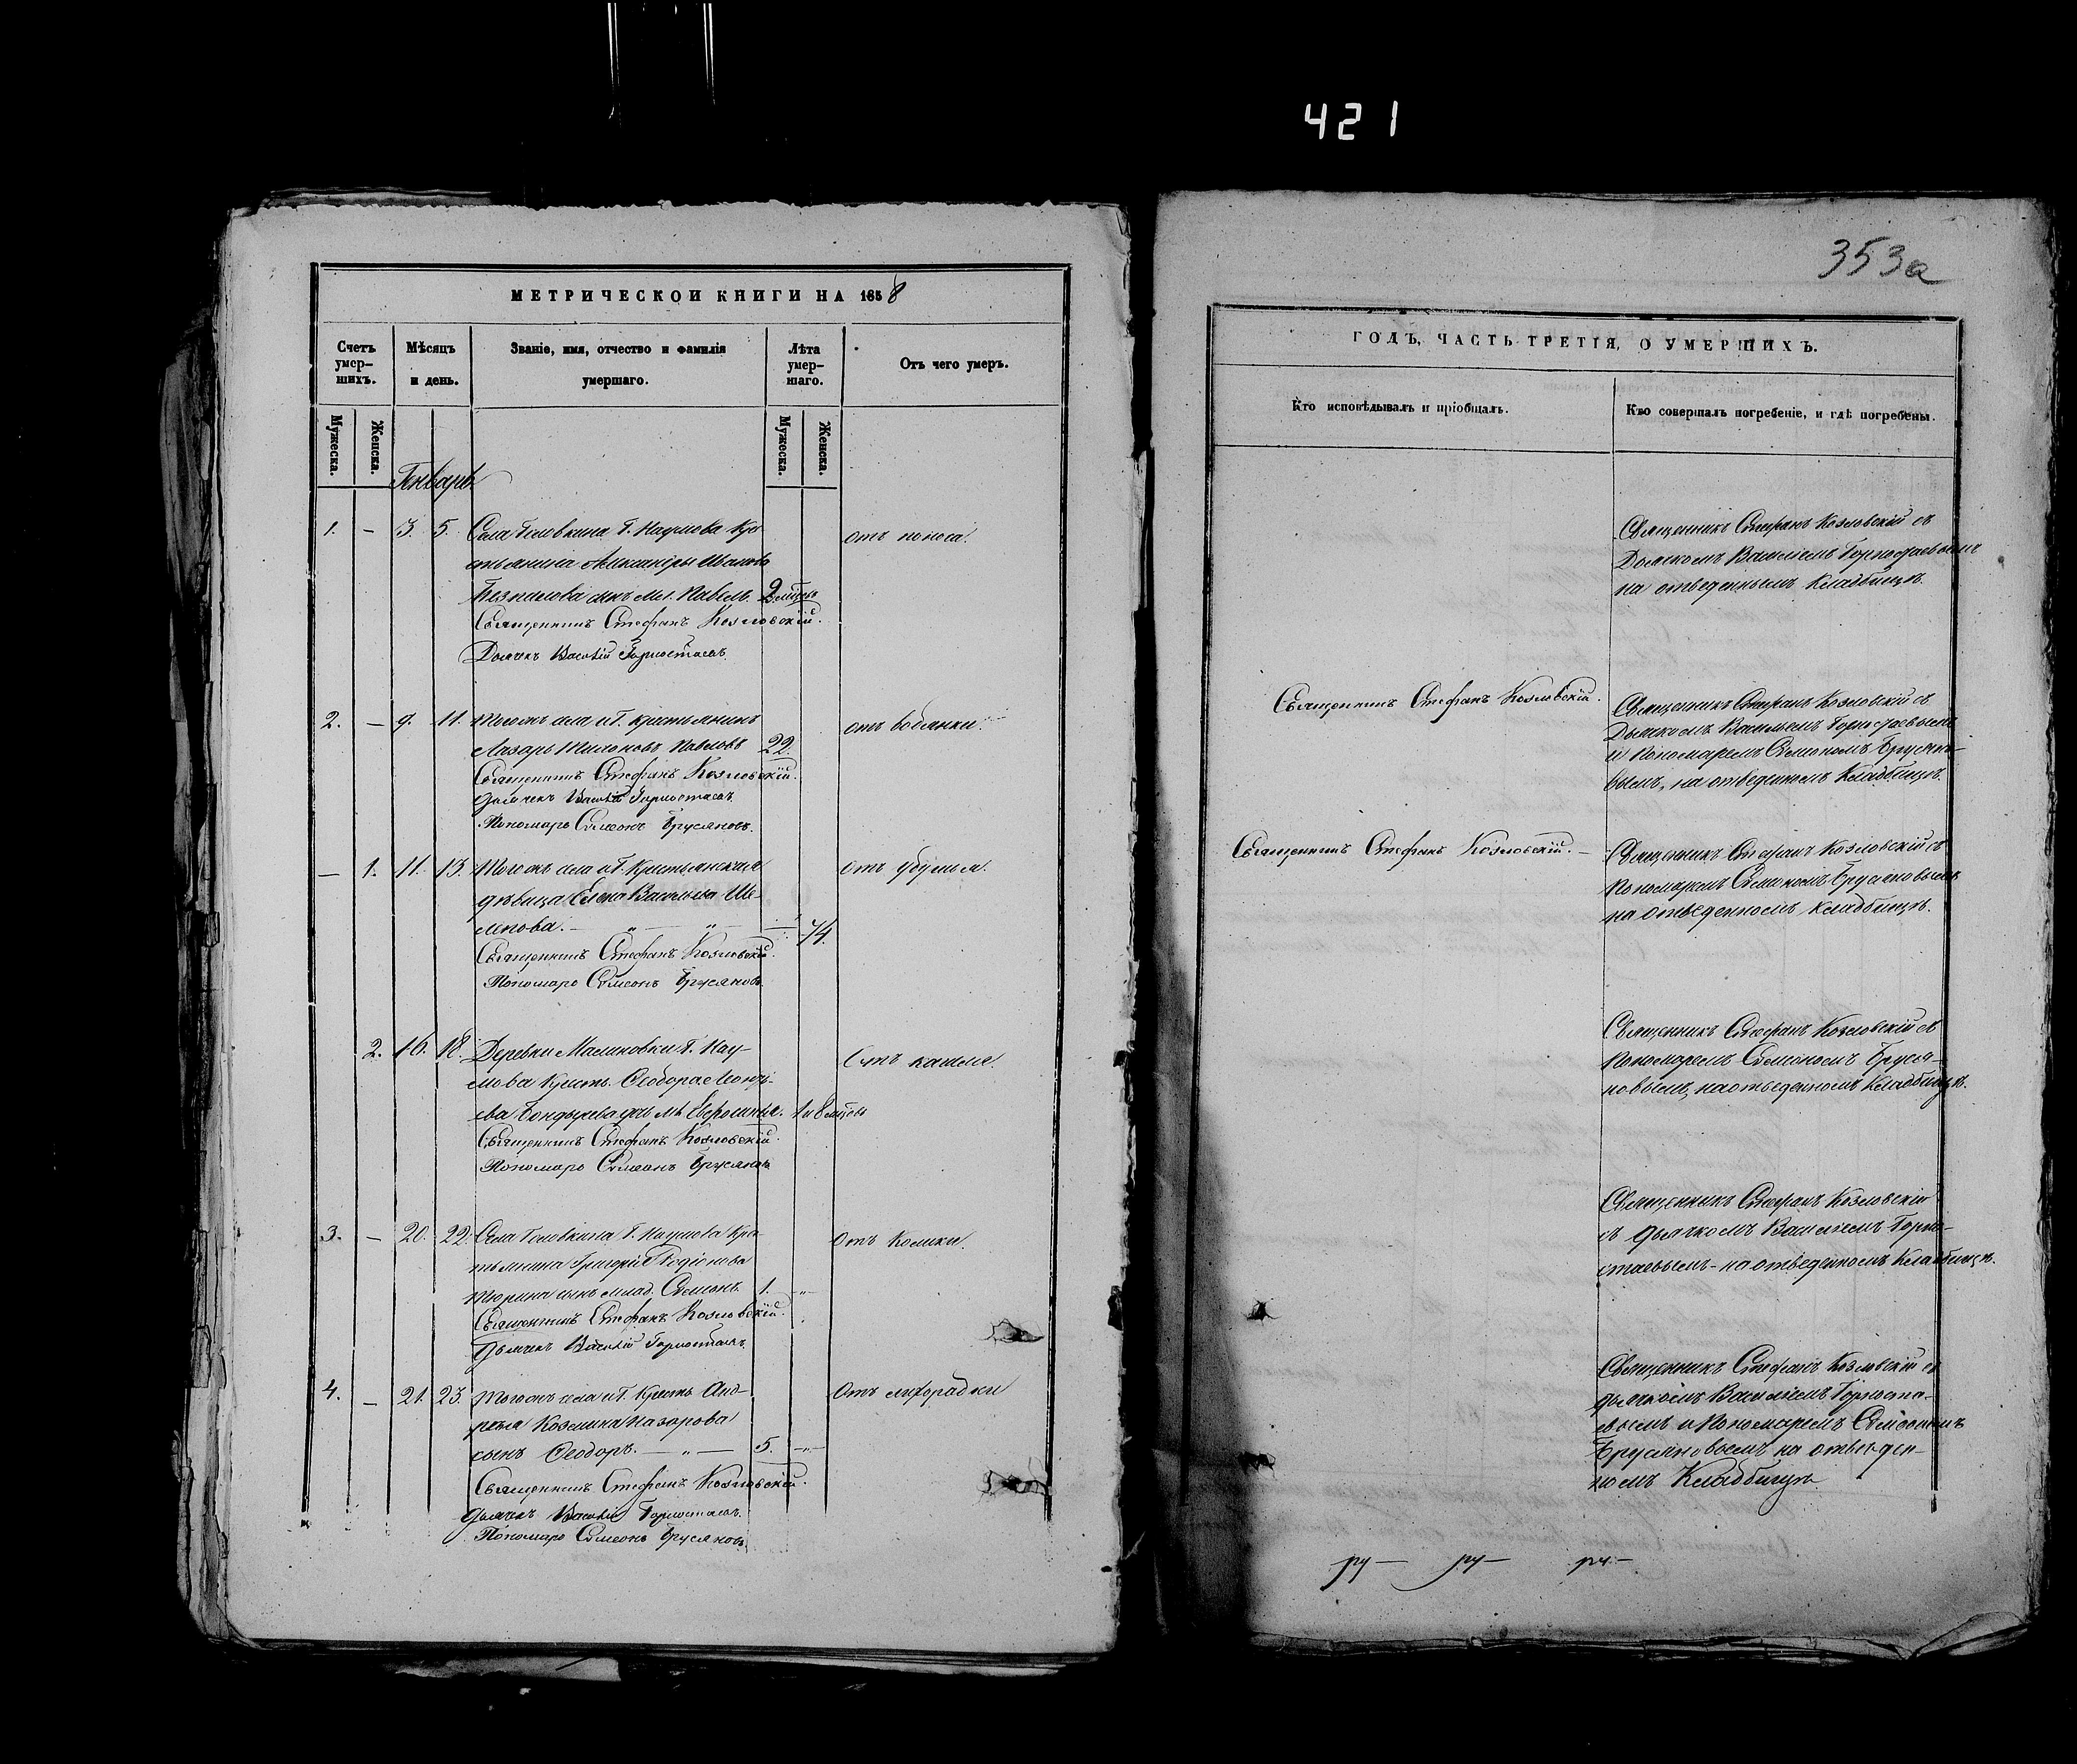 421
353а
МЕТРИЧЕСКОЙ КНИГИ НА 1858
Счетъ умер-шихъ.
Мѣсяцъ и день.
Званіе, имя, отчество и фамилія умершаго.
Лѣта умер-шаго.
Отъ чего умеръ.
Мужеска.
Женска.
Мужеска.
Женска.
Январь
1. – 3. 5. Села Головкина Г. Наумова кре
стьянина Александры Иванова
сынъ мл. Павелъ. 2 мѣсцовъ
отъ поноса.
Священникъ Стефанъ Козловскій.
Дьячекъ Василій Горностаевъ.
2. – 9. 11. Тогожъ села и Г. крестьянинъ
Лазарь Павловъ 22.
отъ водянки.
Священникъ Стефанъ Козловскій.
Дьячекъ Василій Горностаевъ.
Пономарь Симеонъ Брусяновъ.
– 1. 11. 13. Тогожъ села и Г. Крестьянская
дѣвица Елена Васильева Ше-
– „ – „ – 74.
отъ удушья.
Священникъ Стефанъ Козловскій.
Пономарь Симеонъ Брусяновъ.
2. 16. 18. Деревни Малиновки Г. Нау-
мова Крестъ. Ѳеодора Леонть-
ева дчь мл. 1 и 8 мѣсцовъ
Отъ кашля.
Священникъ Стефанъ Козловскій.
Пономарь Симеонъ Брусяновъ
3. – 20. 22. Села Головкина Г. Наумова Кре-
стьянина Григорія Родіонова
Тюрина сынъ млад. Симеонъ. 1. – „ –
Отъ колики.
Священникъ Стефанъ Козловскій.
Дьячекъ Василій Горностаевъ.
4. – 21. 23. Тогожъ села и Г. Крестъ. Анд-
рея Козмина Назарова
сынъ Ѳеодоръ. – „ – 5. – „ –
Отъ лихорадки
Священникъ Стефанъ Козловскій.
Дьячекъ Василій Горностаевъ.
Пономарь Симеонъ Брусяновъ.
ГОДЪ, ЧАСТЬ ТРЕТІЯ, О УМЕРШИХЪ.
Кто исповѣдывалъ и пріобщалъ.
Кто совершалъ погребеніе, и гдѣ погребены.
Священникъ Стефанъ Козловскій съ
Дьячкомъ Василіемъ Горностаевымъ
на отведенномъ Кладбищѣ.
Священникъ Стефанъ Козловскій.
Священникъ Стефанъ Козловскій съ
Дьячкомъ Василіемъ Горностаевымъ
и Пономаремъ Симеономъ Брусяно-
вымъ, на отведенномъ Кладбищѣ.
Священникъ Стефанъ Козловскій. –
Священникъ Стефанъ Козловскій съ
Пономаремъ Симеономъ Брусяновымъ
на отведенномъ Кладбищѣ.
Священникъ Стефанъ Козловскій съ
Пономаремъ Симеономъ Бруся-
новымъ, на отведенномъ Кладбищѣ.
Священникъ Стефанъ Козловскій
съ дьячкомъ Василіемъ Горно-
стаевымъ – на отведенномъ Кладбищѣ.
Священникъ Стефанъ Козловскій съ
дьячкомъ Василіемъ Горноста-
евымъ и Пономаремъ Симеономъ
Брусяновымъ, на отведен-
номъ Кладбищѣ